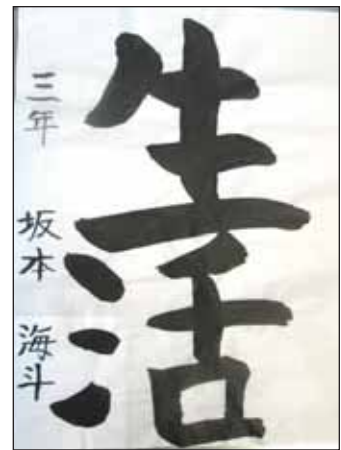 生活
三年 坂本 海斗